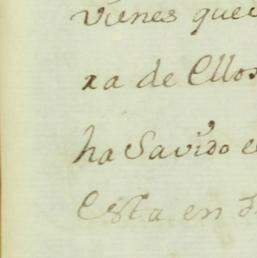 vienes que
xa de Ellos
ha Savido e
Esta en